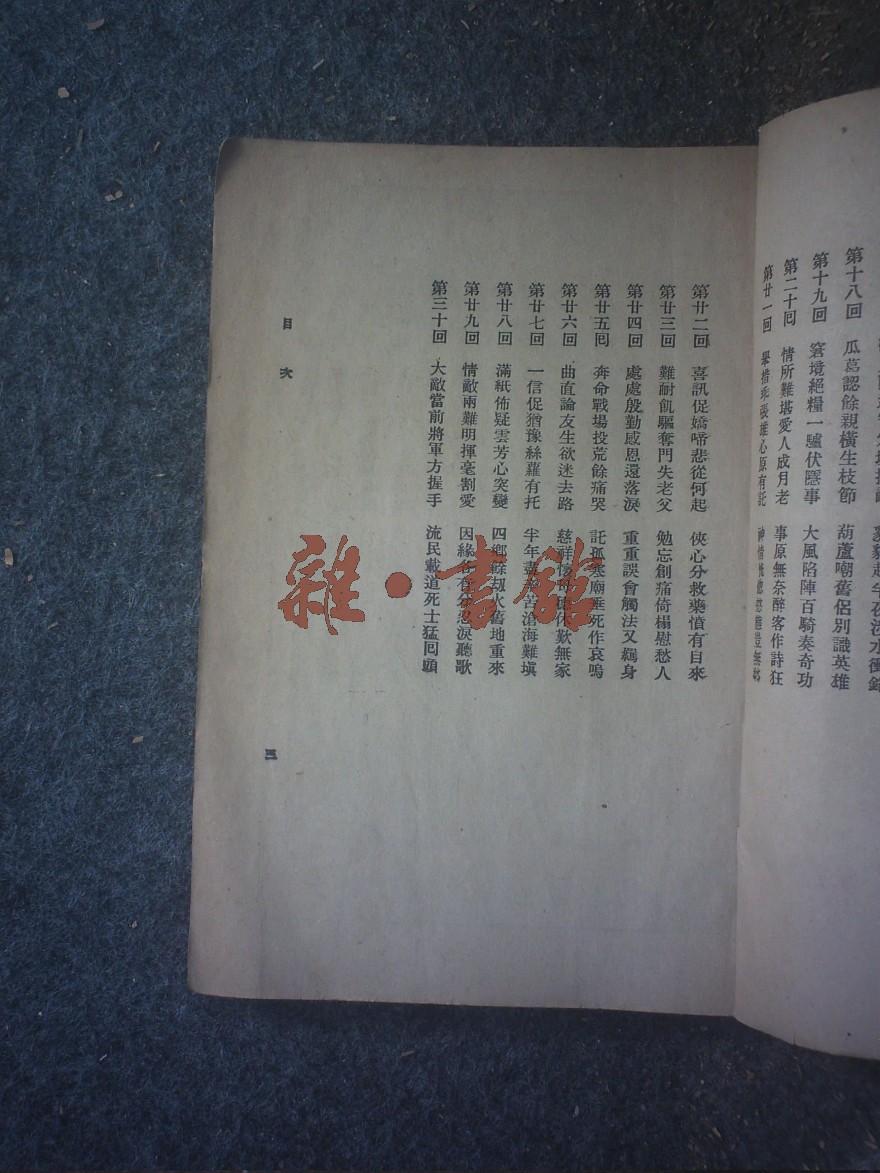 第十八回 瓜葛認餘親橫生枝節 葫蘆嘲舊侶別識英雄
第十九回 窘境絕糧一驢伏隱事 大風陷陣百騎奏奇功
第二十回 情所難堪愛人成月老 事原無奈醉客作詩狂
第廿一回 舉措乖張雄心原有託
第廿二回 喜訊促嬌啼悲從何起 俠心分救藥憤有自來
第廿三回 難耐飢驅奪門失老父 勉忘創痛倚榻慰愁人
第廿四回 處處殷勤感恩還落淚 重重誤會觸法又羈身
第廿五囘 奔命戰場投荒餘痛哭 託孤寒廟垂死作哀鳴
第廿六回 曲直論友生欲迷去路 慈祥 休歎無家
第廿七回 一信促猶豫絲蘿有托 半年 苦滄海難塡
第廿八回 滿紙佈疑雲芳心突變 四鄉餘刼火舊地重來
第廿九回 情敵兩難明揮毫割愛 因緣各有 淚聽歌
第三十回 大敵當前將軍方握手 流民載道死士猛回顧
目次
三
雜·書館